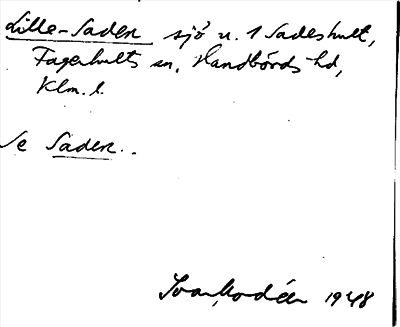 Lille-Saden sjö u. 1 Sadeshult,
Fagerhults sn, Handbörds hd,
Klm. l.
Se Saden.
Ivar Modéer 1948